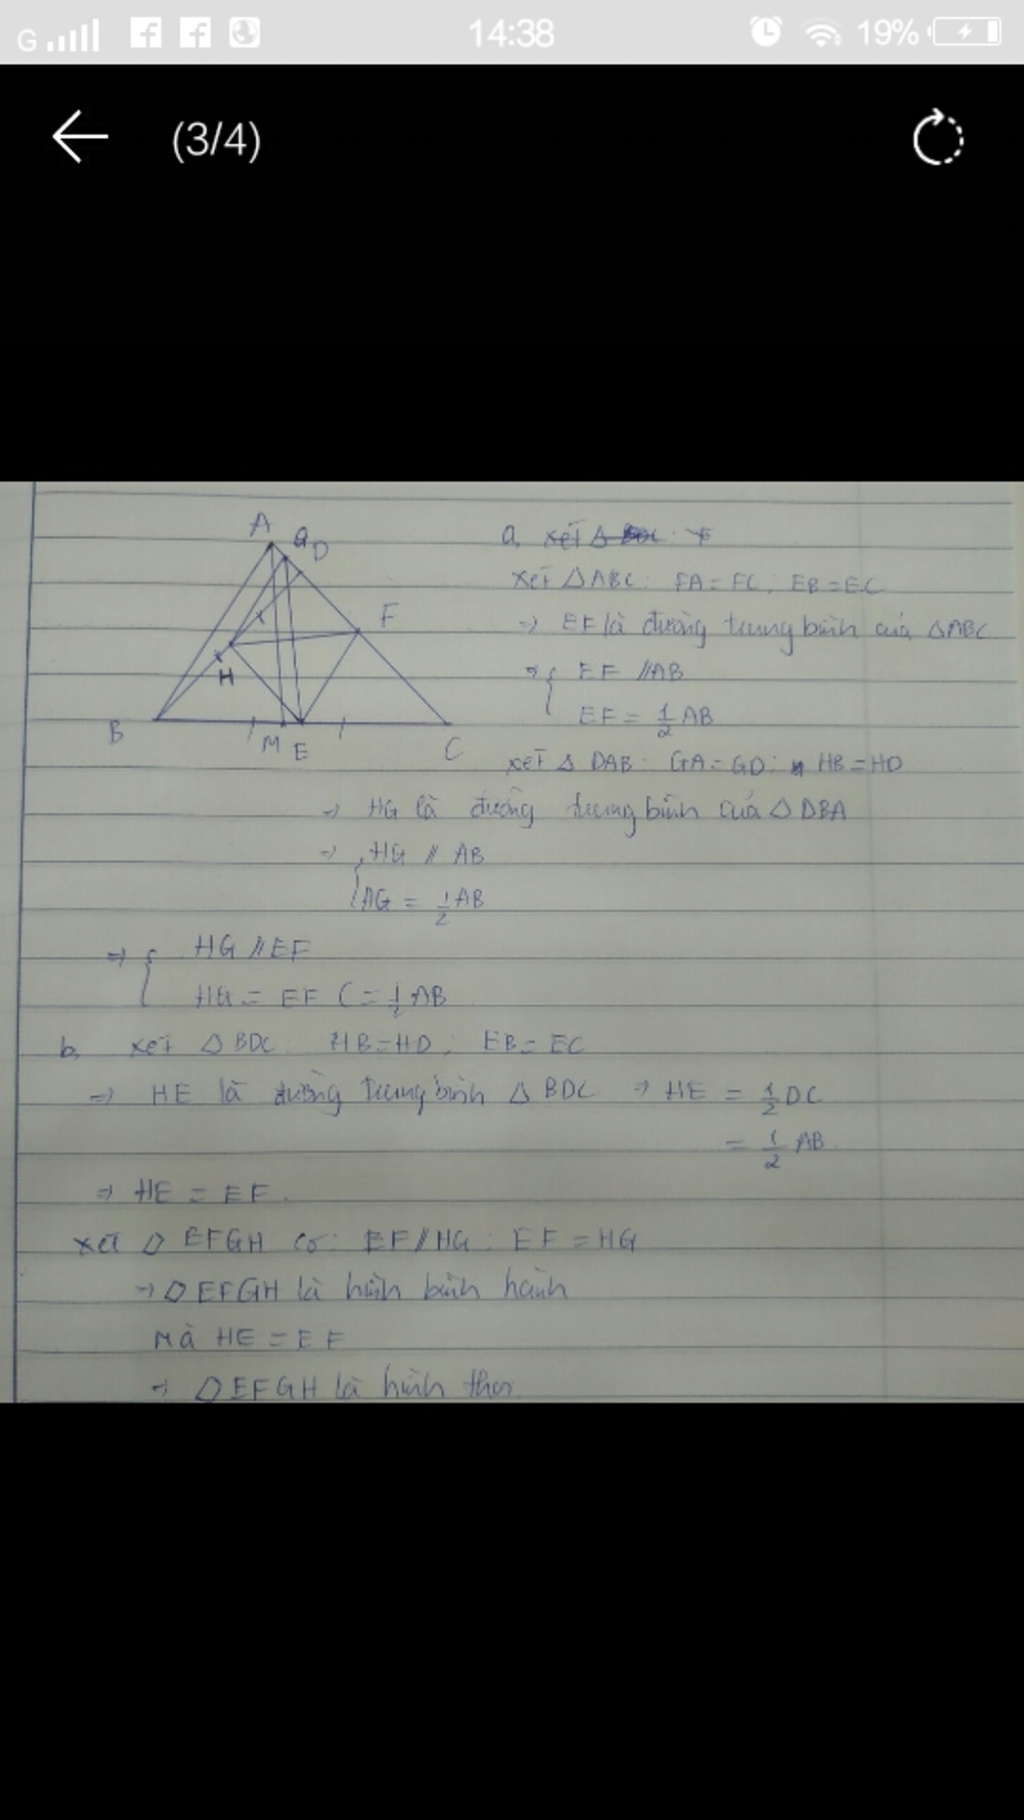 G 14:38 19%
(3/4)
A G D
F
H
B M E C
a, xét Δ
xét ΔABC: FA = FC; EB = EC
=> EF là đường trung bình của ΔABC
=> { EF // AB
EF = 1/2 AB
xét Δ DAB: GA = GD; HB = HD
=> HG là đường trung bình của Δ DBA
=> { HG // AB
AG = 1/2 AB
=> { HG // EF
HG = EF (= 1/2 AB
b, xét Δ BDC: HB = HD; EB = EC
=> HE là đường trung bình Δ BDC => HE = 1/2 DC
= 1/2 AB.
=> HE = EF.
xét ▱ EFGH có: EF // HG; EF = HG
=> ▱ EFGH là hình bình hành
Mà HE = EF
=> ▱ EFGH là hình thoi.